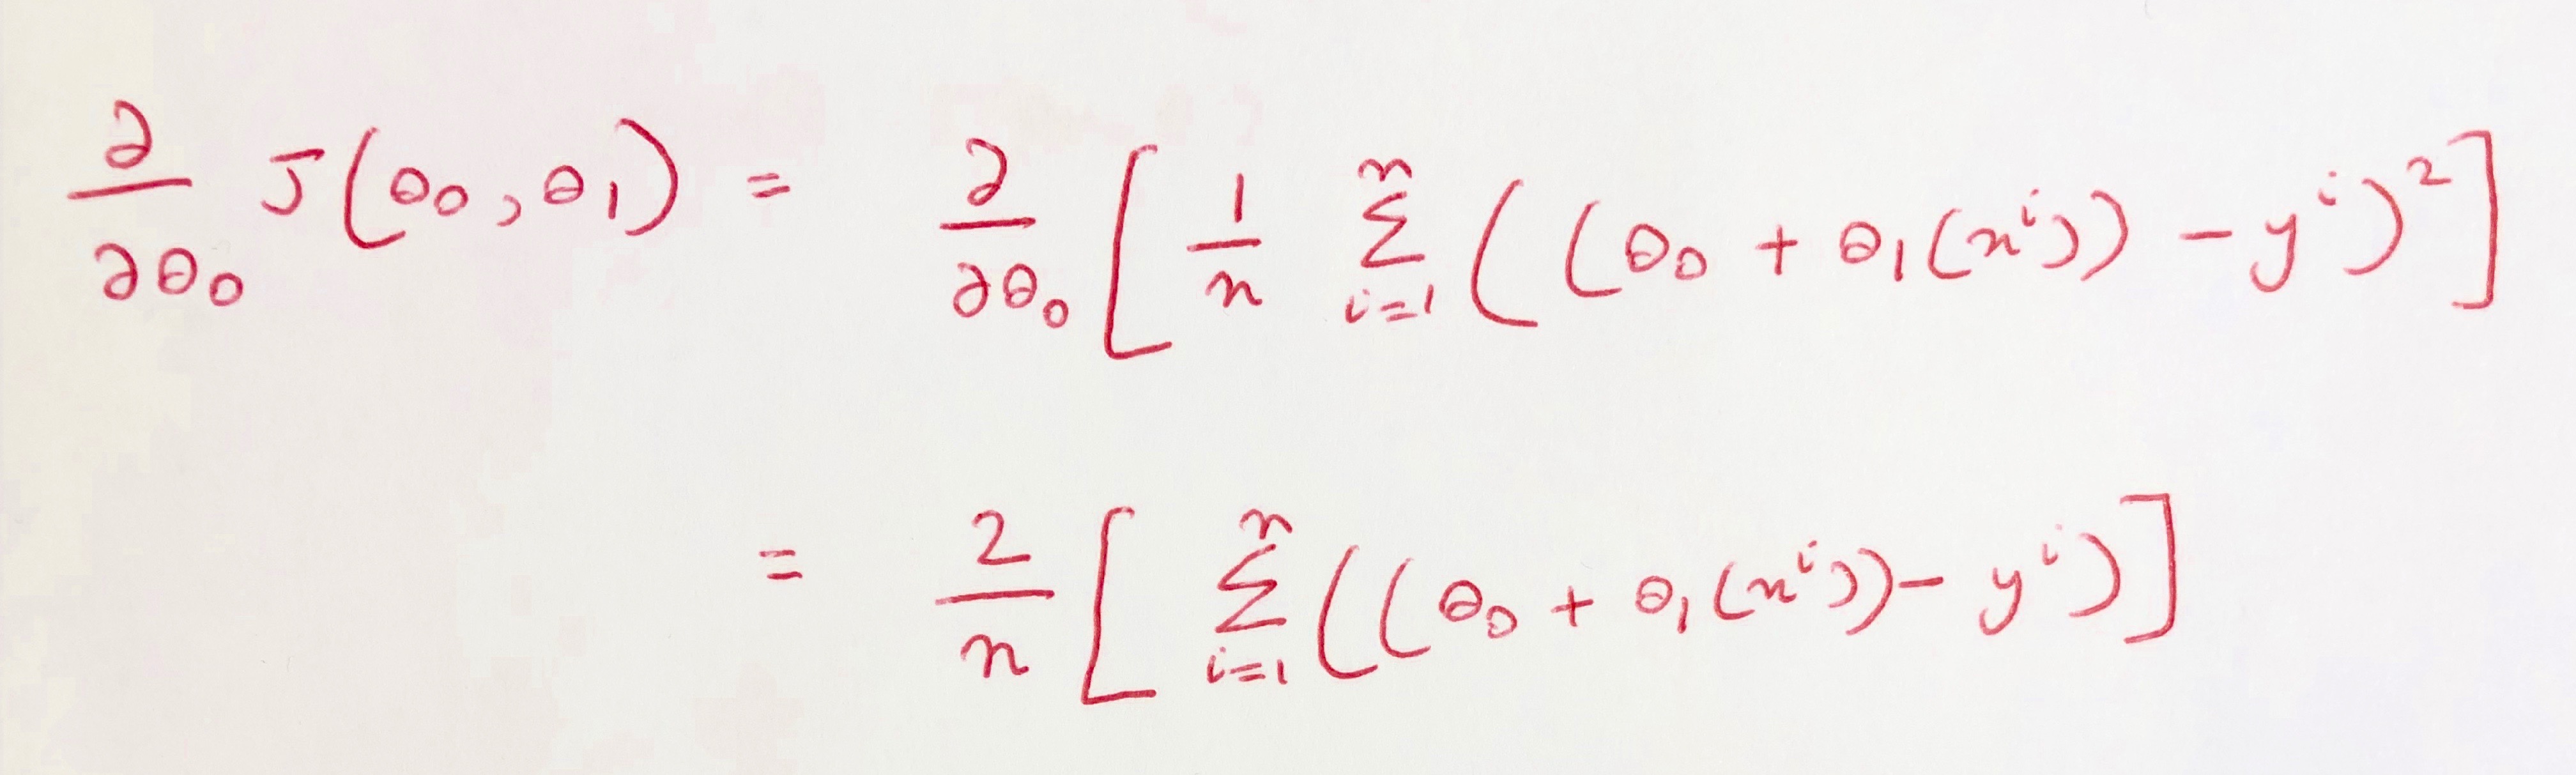 ∂/∂θ₀ J(θ₀, θ₁) = ∂/∂θ₀ [ 1/n Σᵢ₌₁ⁿ ( (θ₀ + θ₁(xⁱ)) − yⁱ )² ]
= 2/n [ Σᵢ₌₁ⁿ ( (θ₀ + θ₁(xⁱ)) − yⁱ ) ]